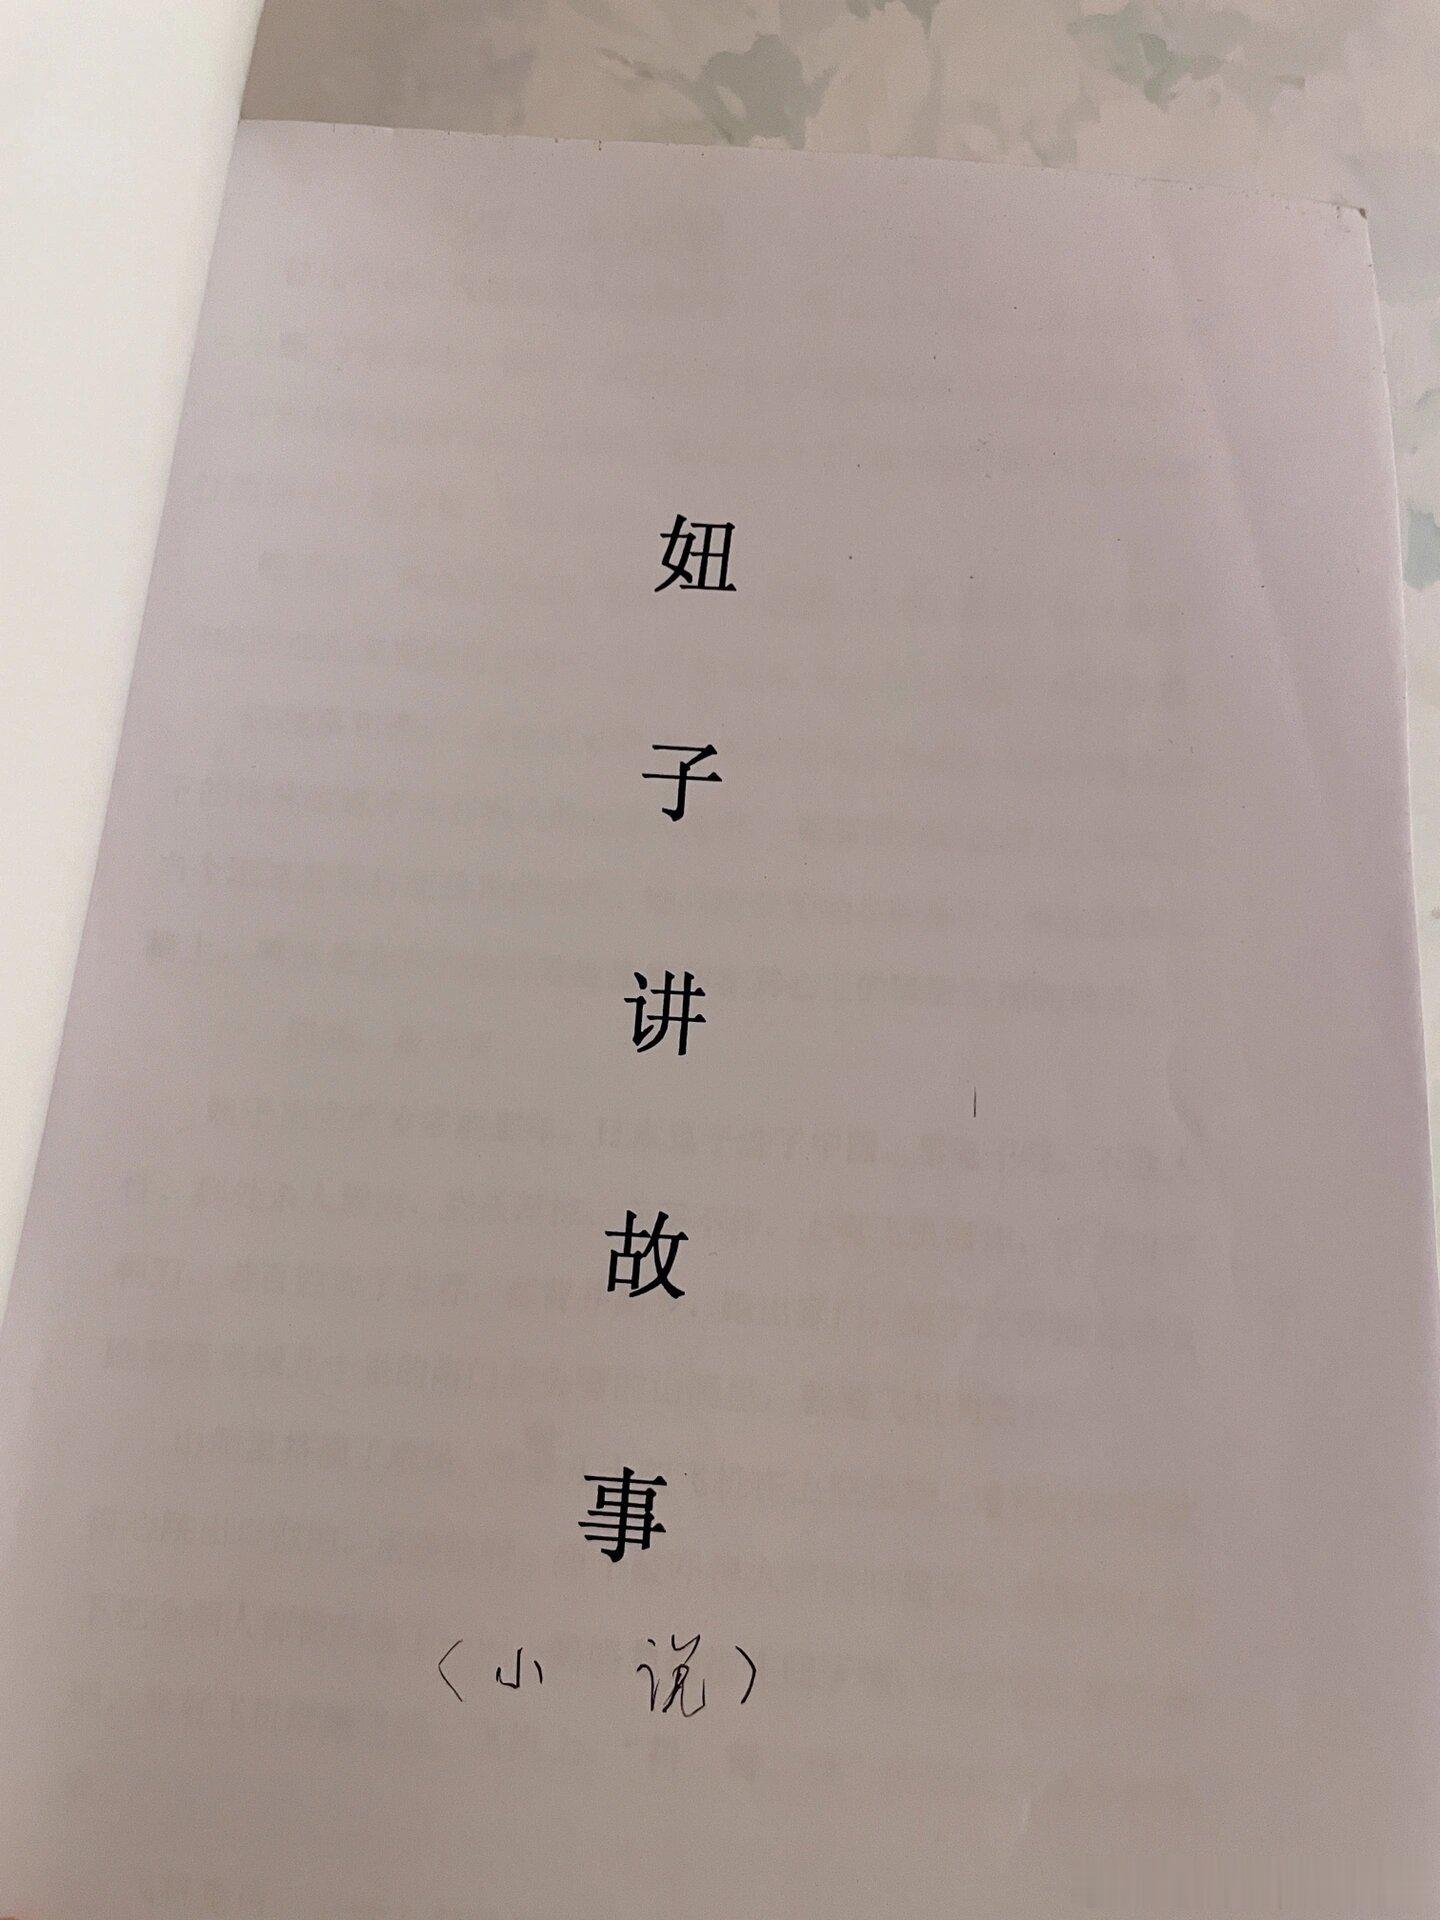 妞子讲故事
（小说）